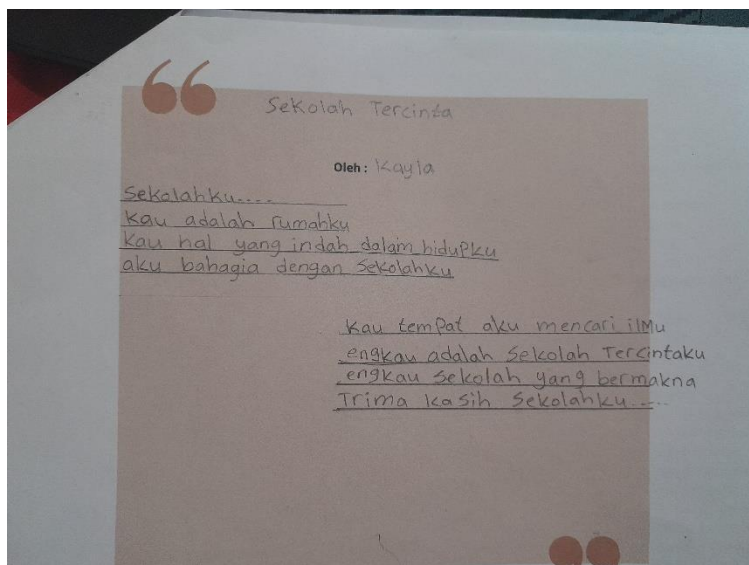 Sekolah Tercinta
Oleh: Kayla
Sekolahku....
Kau adalah rumahku
Kau hal yang indah dalam hidupku
aku bahagia dengan sekolahku
Kau tempat aku mencari ilmu
engkau adalah sekolah Tercintaku
engkau sekolah yang bermakna
Trima kasih sekolahku.....